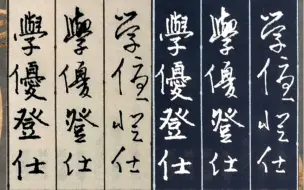 學優登仕
學優登仕
學優登仕
學優登仕
學優登仕
學優登仕